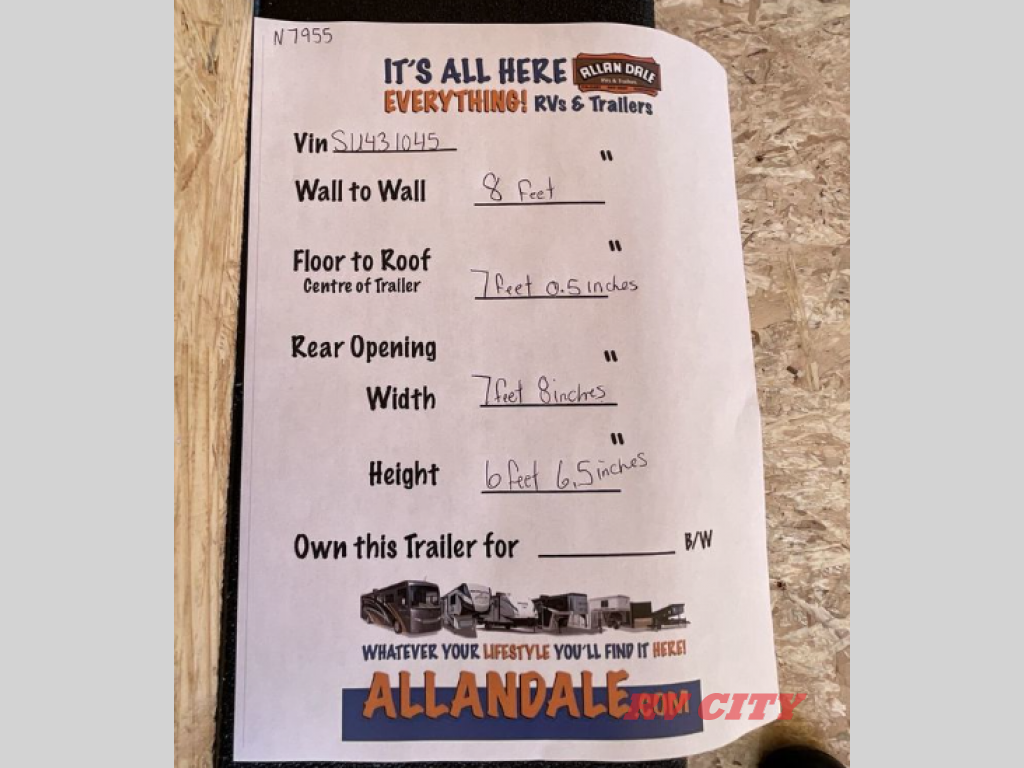 N7955
IT'S ALL HERE ALLAN DALE
RVs & Trailers
EVERYTHING! RVs & Trailers
Vin SU431045
"
Wall to Wall 8 feet
"
Floor to Roof
Centre of Trailer 7 feet 0.5 inches
Rear Opening
"
Width 7 feet 8 inches
"
Height 6 feet 6.5 inches
Own this Trailer for B/W
WHATEVER YOUR LIFESTYLE YOU'LL FIND IT HERE!
ALLANDALE.COM
RV CITY